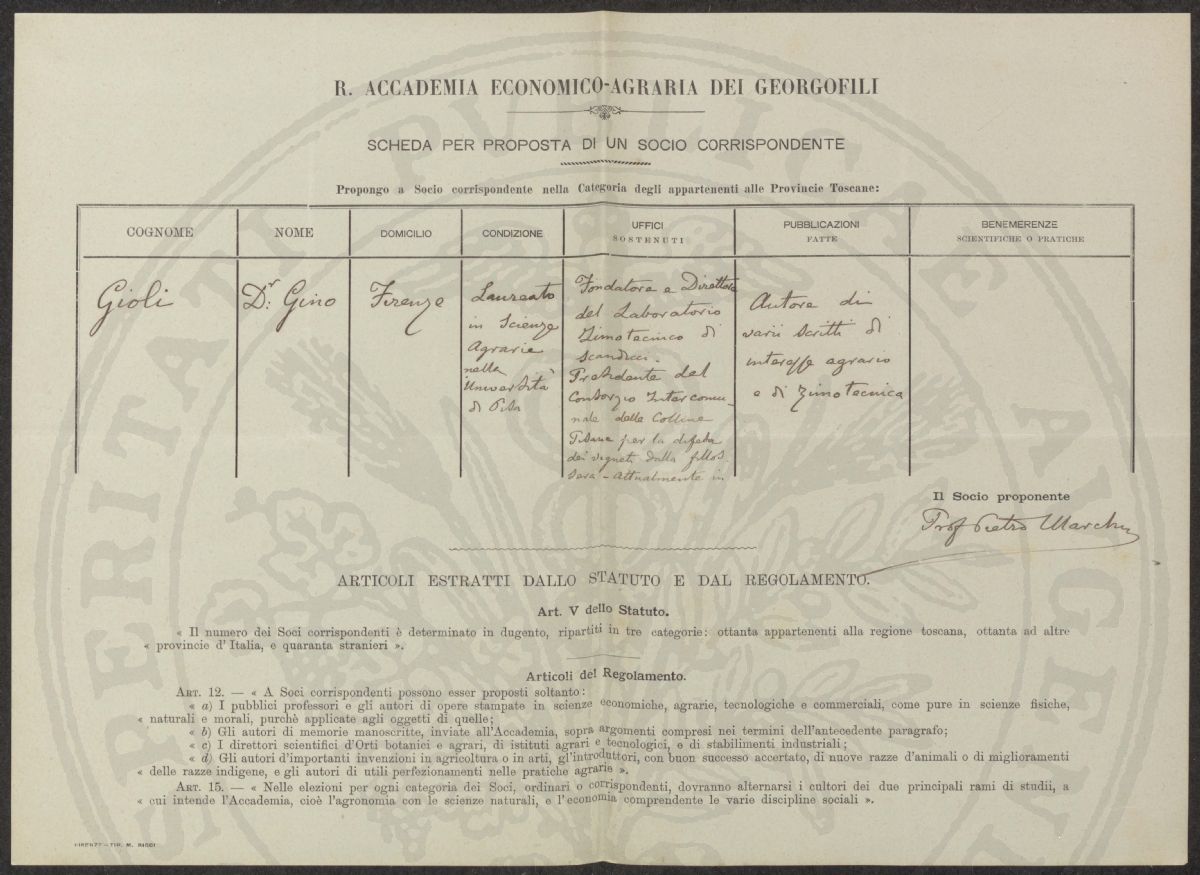 R. ACCADEMIA ECONOMICO-AGRARIA DEI GEORGOFILI
SCHEDA PER PROPOSTA DI UN SOCIO CORRISPONDENTE
Propongo a Socio corrispondente nella Categoria degli appartenenti alle Provincie Toscane:
COGNOME
NOME
DOMICILIO
CONDIZIONE
UFFICI
SOSTENUTI
PUBBLICAZIONI
FATTE
BENEMERENZE
SCIENTIFICHE O PRATICHE
Gioli
Dr. Gino
Firenze
Laureato
in Scienze
Agrarie
nella
Università
di Pisa
Fondatore e Direttore
del Laboratorio
Zimotecnico di
Scandicci.
Presidente del
Consorzio Intercomu-
nale delle Colline
Pisane per la difesa
dei vigneti dalla fillos
sera - Attualmente in
Autore di
varii scritti di
interesse agrario
e di Zimotecnica
Il Socio proponente
Prof Pietro Marchi
ARTICOLI ESTRATTI DALLO STATUTO E DAL REGOLAMENTO.
Art. V dello Statuto.
« Il numero dei Soci corrispondenti è determinato in dugento, ripartiti in tre categorie: ottanta appartenenti alla regione toscana, ottanta ad altre
« provincie d'Italia, e quaranta stranieri ».
Articoli del Regolamento.
ART. 12. — « A Soci corrispondenti possono esser proposti soltanto:
« a) I pubblici professori e gli autori di opere stampate in scienze economiche, agrarie, tecnologiche e commerciali, come pure in scienze fisiche,
« naturali e morali, purchè applicate agli oggetti di quelle;
« b) Gli autori di memorie manoscritte, inviate all'Accademia, sopra argomenti compresi nei termini dell'antecedente paragrafo;
« c) I direttori scientifici d'Orti botanici e agrari, di istituti agrari e tecnologici, e di stabilimenti industriali;
« d) Gli autori d'importanti invenzioni in agricoltura o in arti, gl'introduttori, con buon successo accertato, di nuove razze d'animali o di miglioramenti
« delle razze indigene, e gli autori di utili perfezionamenti nelle pratiche agrarie ».
ART. 15. — « Nelle elezioni per ogni categoria dei Soci, ordinari o corrispondenti, dovranno alternarsi i cultori dei due principali rami di studii, a
« cui intende l'Accademia, cioè l'agronomia con le scienze naturali, e l'economia comprendente le varie discipline sociali ».
FIRENZE—TIP. M. RICCI
PROSPERITATI PUBLICAE AUGENDAE